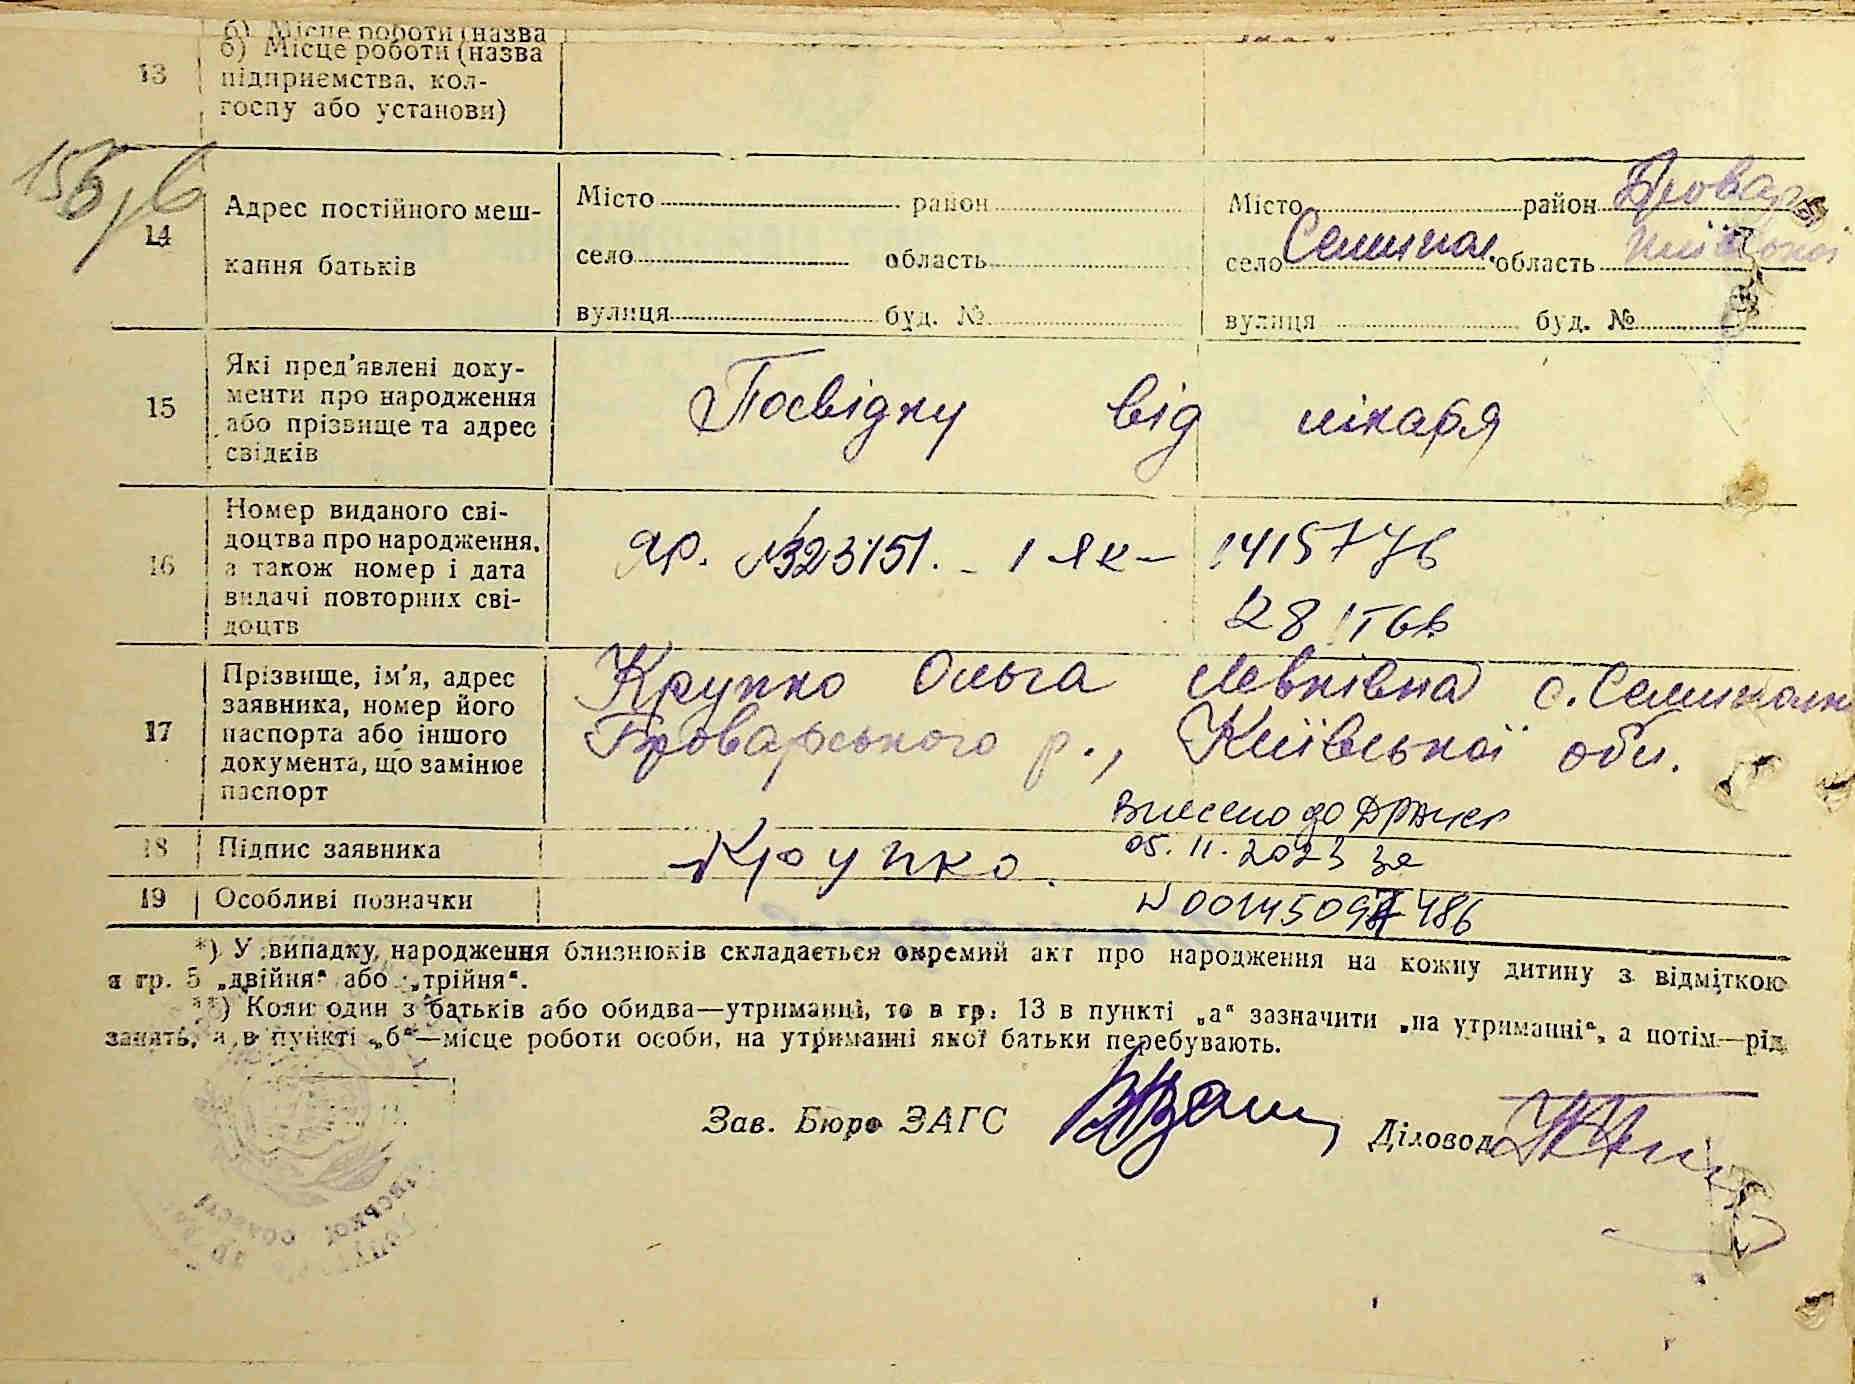 б) Місце роботи (назва
б) Місце роботи (назва
13 підприємства, кол-
госпу або установи)
14 Адрес постійного меш-
кання батьків
Місто район Місто район Бровар
село область село Семипол. область Київської
вулиця буд. № вулиця буд. №
15 Які пред'явлені доку-
менти про народження
або прізвище та адрес
свідків
Посвідку від лікаря
16 Номер виданого сві-
доцтва про народження,
а також номер і дата
видачі повторних сві-
доцтв
ЯР. №323151. - І ЯК - 141577
28
17 Прізвище, ім'я, адрес
заявника, номер його
паспорта або іншого
документа, що замінює
паспорт
Крупко Ольга Левківна с. Семиполк
Броварського р., Київської обл.
Внесено до ДРАЦС
18 Підпис заявника Крупко. 05.11.2023 за
19 Особливі позначки N 00145097486
*) У випадку народження близнюків складається окремий акт про народження на кожну дитину з відміткою
в гр. 5 „двійня“ або „трійня“.
**) Коли один з батьків або обидва—утриманні, то в гр. 13 в пункті „а“ зазначити „на утриманні“, а потім—рід
занять, а в пункті „б“—місце роботи особи, на утриманні якої батьки перебувають.
Зав. Бюро ЗАГС Діловод